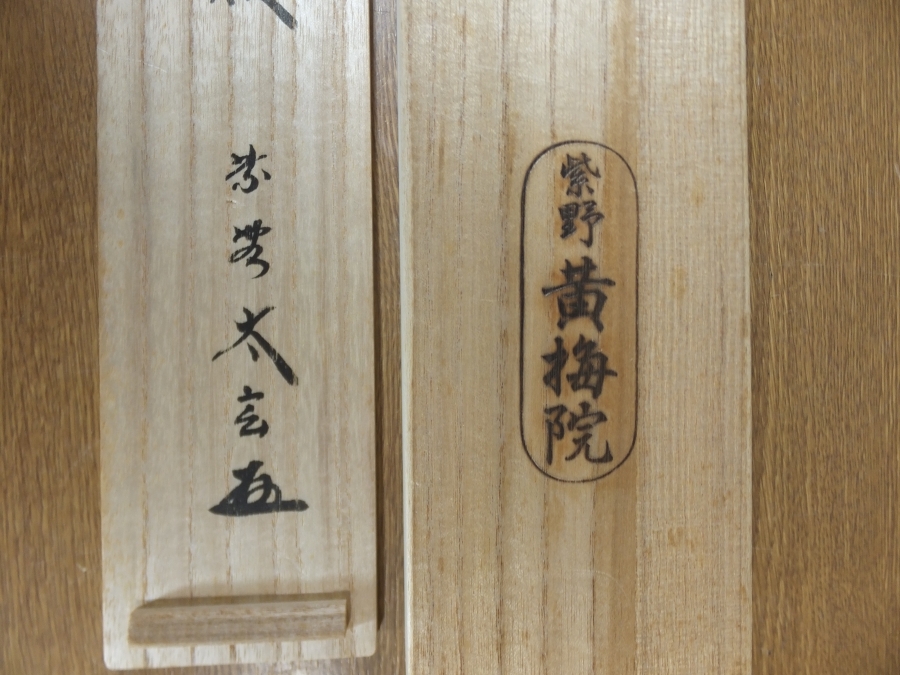 紫野黄梅院
紫野太玄